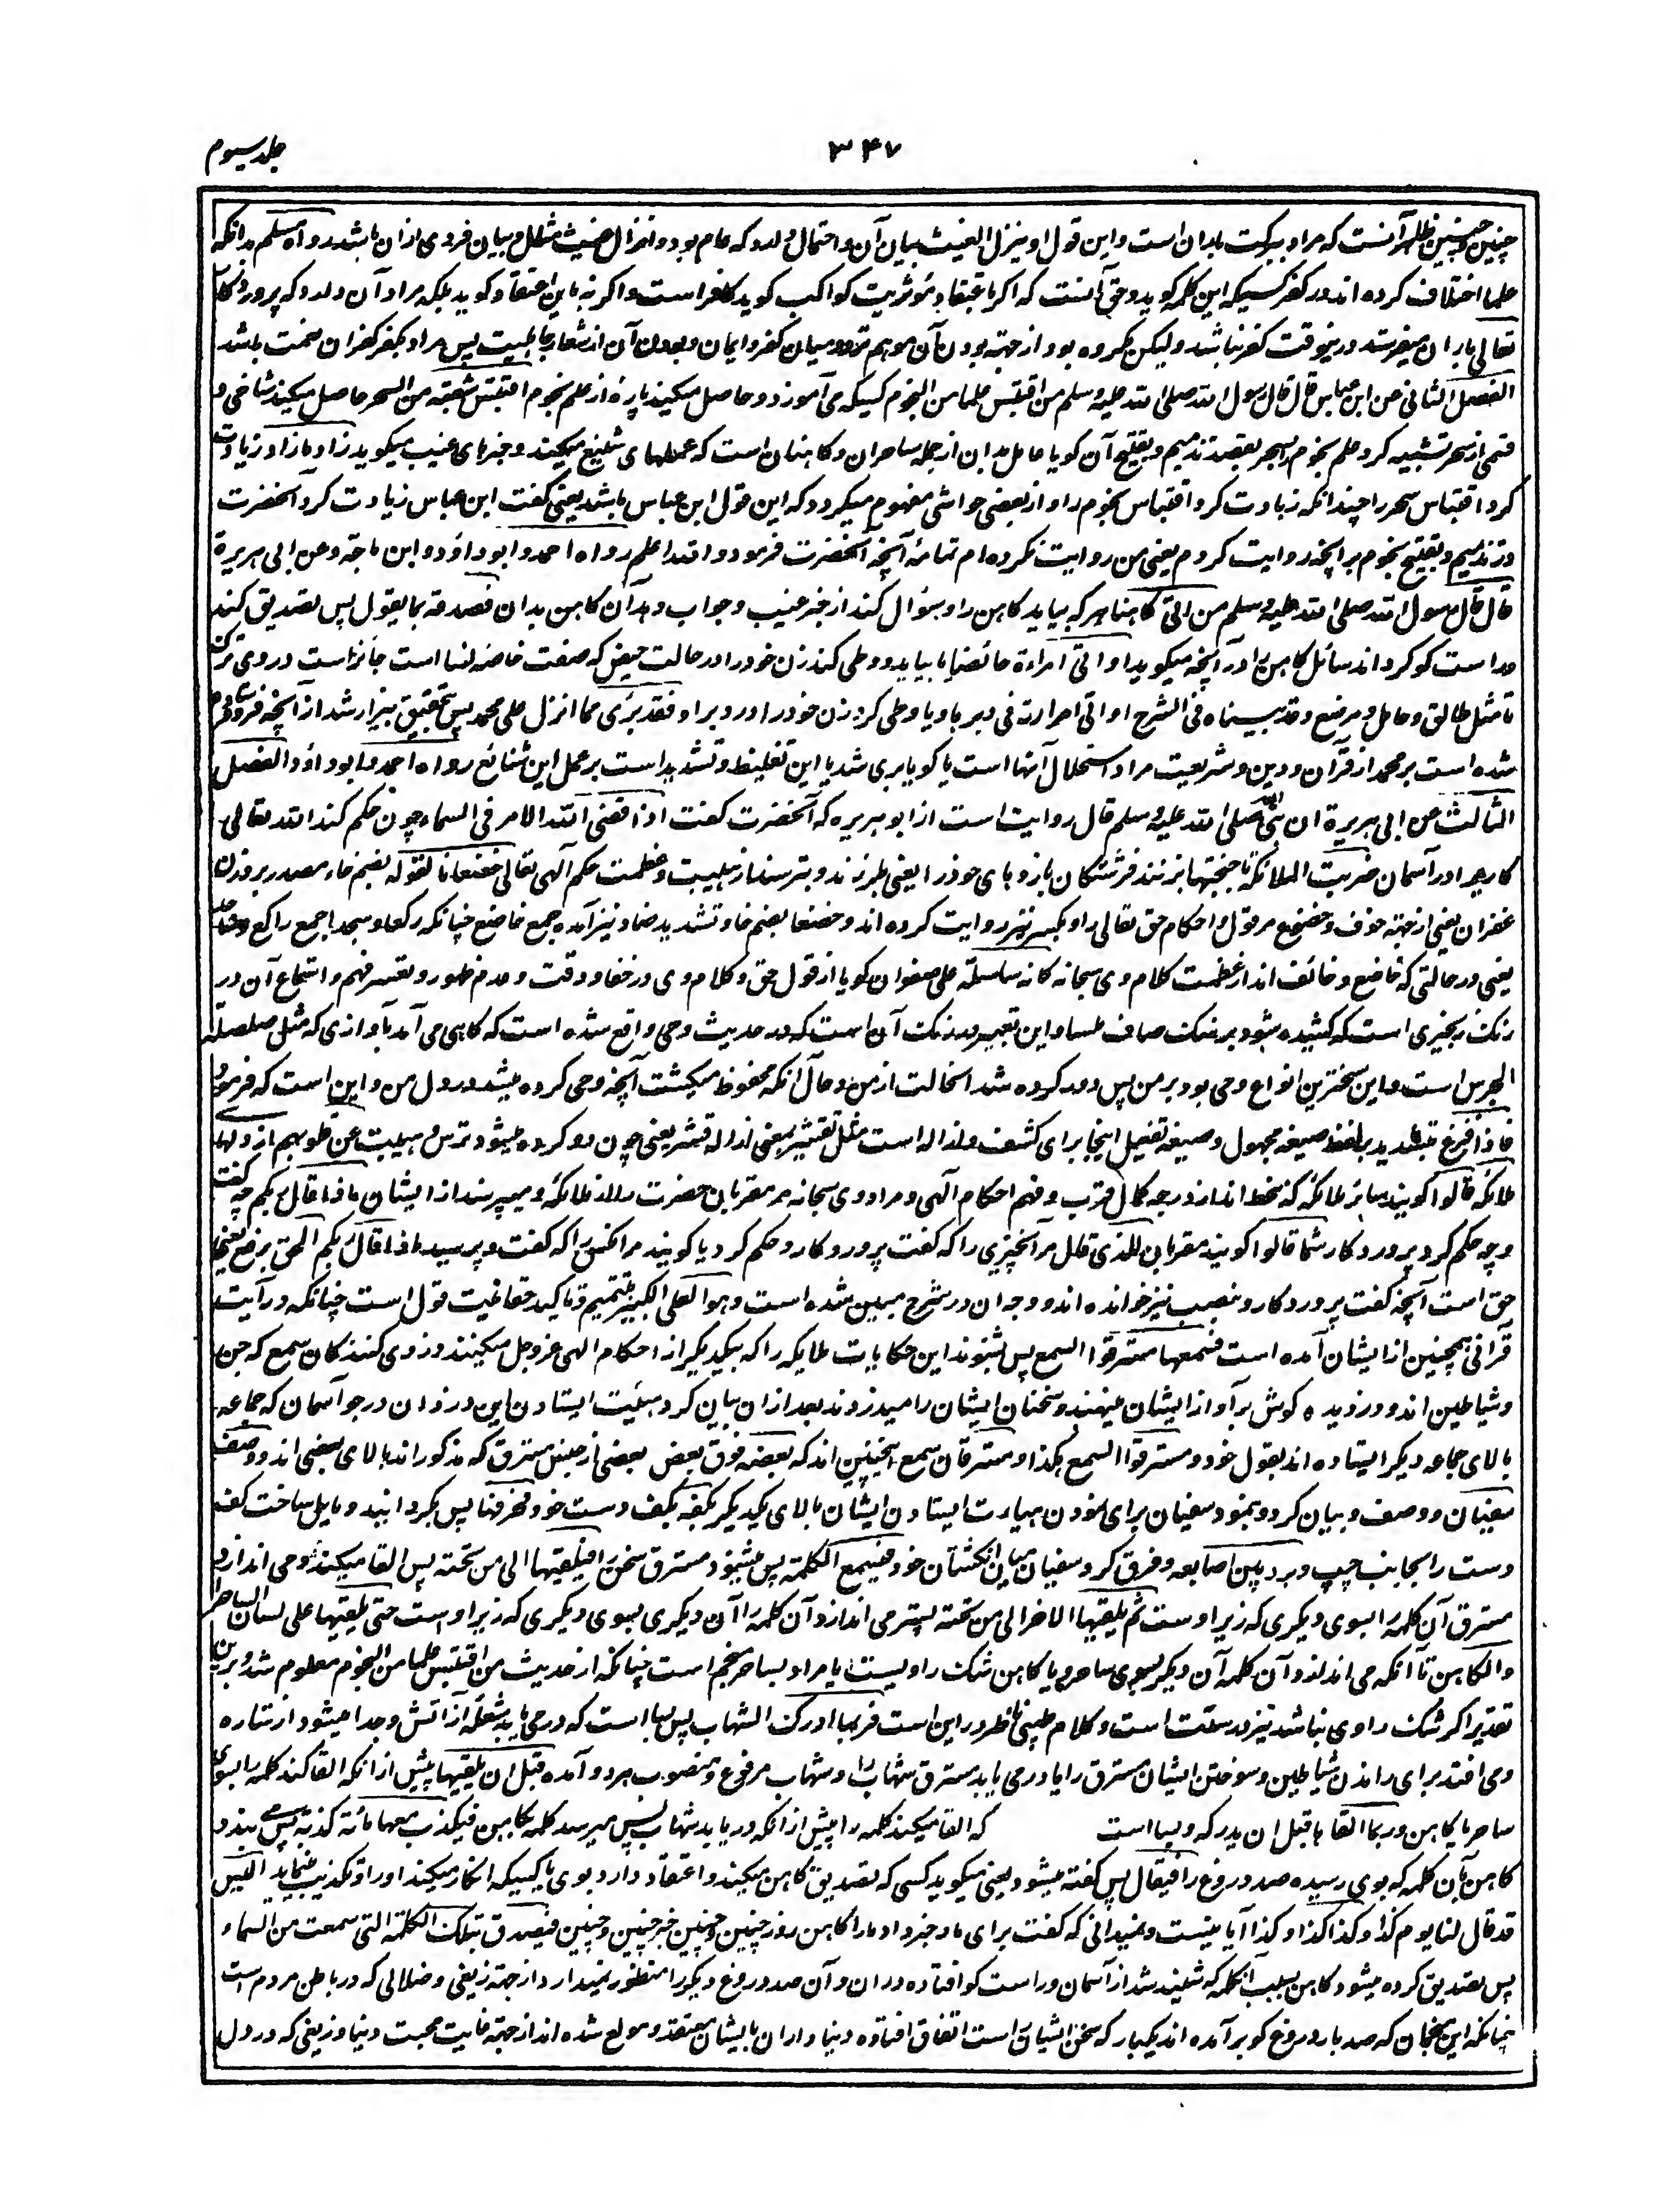 جلد سیوم
۳۴۷
چنین و چنین ظاهر آنست که مراد ببرکت باران است و این قول او ینزل الغیث بیان آن و احتمال دارد که عام بود و انزال غیث مثال و بیان فردی ازان باشد رواه مسلم بدانکه
علما اختلاف کرده اند در کفر کسیکه این کلمه گوید و حق آنست که اگر باعتقاد مؤثریت کواکب گوید کافر است و اگر نه باین اعتقاد گوید بلکه مراد آن دارد که پروردگار
تعالی باران میفرستد درینوقت کفر نباشد ولیکن مکروه بود از جهته بودن آن موهم تردد میان کفر و ایمان و بودن آن از شعار جاهلیت پس مراد بکفر کفران نعمت باشد
الفصل الثانی عن ابن عباس قال قال رسول الله صلی الله علیه وسلم من اقتبس علما من النجوم کسیکه می آموزد و حاصل میکند پاره از علم نجوم اقتبس شعبة من السحر حاصل میکند شاخی و
قسمی از سحر تشبیه کرد علم نجوم را بسحر بقصد تذمیم و تقبیح آن گویا عامل بدان از جمله ساحران و کاهنان است که عملهای شنیع میکنند و خبرهای غیب میگوید زاد ما زاد زیادت
کرد اقتباس سحر را چندانکه زیادت کرد اقتباس نجوم را و از بعضی حواشی مفهوم میگردد که این قول ابن عباس باشد یعنی گفت ابن عباس زیادت کرد آنحضرت
در تذمیم و تقبیح نجوم بر آنچه روایت کردم یعنی من روایت نکرده ام تمامهٔ آنچه آنحضرت فرمود و الله اعلم رواه احمد و ابو داؤد و ابن ماجة وعن ابی هریرة
قال قال رسول الله صلی الله علیه وسلم من اتی کاهنا هر که بیاید کاهن را و سؤال کند از خبر غیب و جواب دهد آن کاهن بدان فصدقه بما یقول پس تصدیق کند
و راست گو گرداند سائل کاهن را در آنچه میگوید او اتی امراءة حائضا یا بیاید و وطی کند زن خود را در حالت حیض که صفت خاصه نسا است جائز است در وی ترک
تا مثل طالق و حامل و مرضع وقد بیناه فی الشرح او اتی امرأته فی دبرها و یا وطی کرد زن خود را در دبر او فقد برئ مما انزل علی محمد پس بتحقیق بیزار شد از آنچه فرو فرستاده
شده است بر محمد از قرآن و دین و شریعت مراد استحلال آنها است یا گویا بری شد یا این تغلیظ و تشدید است بر عمل این شنائع رواه احمد و ابو داؤد الفصل
الثالث عن ابی هریرة ان نبی الله صلی الله علیه وسلم قال روایت است از ابو هریره که آنحضرت گفت اذا قضی الله الامر فی السماء چون حکم کند الله تعالی
کاریرا در آسمان ضربت الملائکة باجنحتها بزنند فرشتگان بازوهای خود را یعنی بلرزند و بترسند از هیبت و عظمت حکم آلهی تعالی خضعانا لقوله بضم خاء مصدر بر وزن
غفران یعنی از جهته خوف و خضوع مر قول و احکام حق تعالی را و بکسر نیز روایت کرده اند و خضعا بضم خا و تشدید ضاد نیز آمده جمع خاضع چنانکه رکعا و سجدا جمع راکع و ساجد
یعنی در حالتی که خاضع و خائف اند از عظمت کلام وی سبحانه کانه سلسلة علی صفوان گویا از قول حق و کلام وی در خفا و دقت و عدم ظهور و تعسر فهم و استماع آن در
رنگ زنجیری است که کشیده بشود بر سنگ صاف ملسا و این تعبیر در رنگ آن است که در حدیث وحی واقع شده است که گاهی می آمد بآوازی که مثل صلصلة
الجرس است و این سخترین انواع وحی بود بر من پس دور کرده شد آنحالت از من و حال آنکه محفوظ میگشت آنچه وحی کرده میشد در دل من و این است که فرمود
فاذا فزع بتشدید بر لفظ صیغه مجهول و صیغه تفعیل اینجا برای کشف و ازاله است مثل تقشیر بمعنی ازاله قشر یعنی چون دور کرده میشود ترس و هیبت عن قلوبهم از دلهای
ملائکه قالوا گویند سائر ملائکه که منحط اند از درجه کمال قرب و فهم احکام آلهی و مراد وی سبحانه مر مقربان حضرت را از ملائکه و میپرسند از ایشان ماذا قال ربکم چه گفت
و چه حکم کرد پروردگار شما قالوا گویند مقربان للذی قال مر آنچیزی را که گفت پروردگار و حکم کرد یا گویند مر آنکس را که گفت و پرسید ماذا قال ربکم الحق برفع یعنی
حق است آنچه گفت پروردگار و بنصب نیز خوانده اند و وجه آن در شرح مبین شده است وهو العلی الکبیر تتمیم و تاکید حقانیت قول است چنانکه در آیت
قرآنی همچنین از ایشان آمده است فسمعها مسترقوا السمع پس بشنوند این حکایات ملایکه را که بیکدیگر از احکام الهی عز و جل میکنند دزدی کنندگان سمع که جن
و شیاطین اند و دزدیده گوش بر آواز ایشان مینهند و سخنان ایشان را میدزدند بعد ازان بیان کرد هیئت ایستادن این دزدان در جو آسمان که جماعه
بالای جماعه دیگر ایستاده اند بقول خود و مسترقوا السمع هکذا و مسترقان سمع اینچنین اند که بعضه فوق بعض بعضی از جنس مسترق که مذکور اند بالای بعضی اند و وصف
سفیان و وصف و بیان کرد و بنمود سفیان برای نمودن هیات ایستادن ایشان بالای یکدیگر بکفه بکف دست خود فحرفها پس بگردانید و مایل ساخت کف
دست را بجانب چپ و بدد بین اصابعه و فرق کرد سفیان میان انگشتان خود فیسمع الکلمة پس میشنود مسترق سخن را فیلقیها الی من تحته پس القا میکند و می اندازد
مسترق آن کلمه را بسوی دیگری که زیر اوست ثم یلقیها الاخر الی من تحته پستر می اندازد آن کلمه را آن دیگری بسوی دیگری که زیر اوست حتی یلقیها علی لسان الساحر
والکاهن تا آنکه می اندازد آن کلمه آن دیگر بسوی ساحر و یا کاهن شک راویست یا مراد بساحر منجم است چنانکه از حدیث من اقتبس علما من النجوم معلوم شد و برین
تقدیر اگر شک راوی نباشد نیز درست است و کلام طیبی ناظر در این است فربما ادرک الشهاب پس بسا است که در می یابد شعله از آتش و جدا میشود از ستاره
و می افتد برای راندن شیاطین و سوختن ایشان مسترق را یا در می یابد مسترق شهاب را و شهاب مرفوع و منصوب هر دو آمده قبل ان یلقیها پیش از آنکه القا کند کلمه را بسوی
ساحر یا کاهن وربما القاها قبل ان یدرکه و بسا است که القا میکند کلمه را پیش از آنکه دریابد شهاب پس میرسد کلمه بکاهن فیکذب معها مائة کذبة پس می بندد
کاهن بآن کلمه که بوی رسیده صد دروغ را فیقال پس گفته میشود یعنی میگوید کسی که تصدیق کاهن میکند و اعتقاد دارد بوی یا کسیکه انکار میکند او را و تکذیب مینماید الیس
قد قال لنا یوم کذا وکذا کذا وکذا آیا نیست و نمیدانی که گفت برای ما و خبر داد ما را کاهن روز چنین و چنین خبر چنین و چنین فیصدق بتلک الکلمة التی سمعت من السماء
پس تصدیق کرده میشود کاهن بسبب آن کلمه که شنیده شد از آسمان و راست گو افتاده دران و آن صد دروغ دیگر را منظور نمیدارد از جهته زیغی و ضلالی که در باطن مردم است
چنانکه این منجمان که صد بار دروغ گو بر آمده اند یکبار که سخن ایشان راست اتفاق افتاده دنیا داران بایشان معتقد و مولع شده اند از جهته غایت محبت دنیا و زیغی که در دل